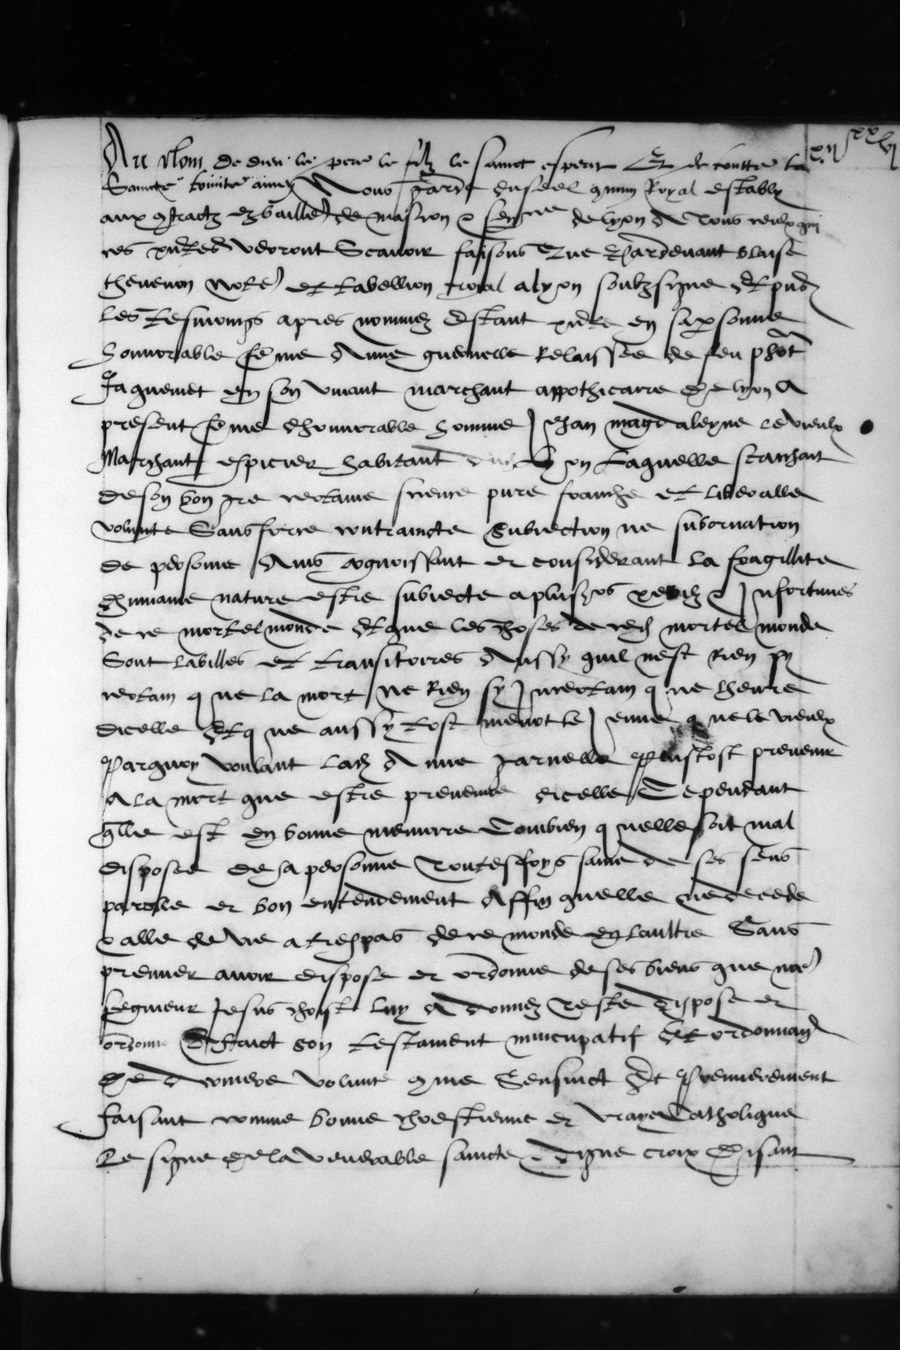 Au Nom de dieu le pere le filz le sainct esperit Et de toutte la
Saincte trinite amen Nous garde du seel commun Royal estably
aux contractz es bailliez de mascon & sen de lyon A tous ceulx qui
ces pntes verront Scavoir faisons Que Pardevant blaise
thevenon Note et tabellion royal a lyon soubzsigne Et pns
Les tesmoings apres nommez Estant pnte en sa personne
honnorable feme Anne guernelle Relaissee de feu phot
Jaquemet en son vivant marchant appothicaire de lyon A
present feme dhonnorable homme Jehan magdaleyne le vieulx
Marchant espicier habitant lyon Laquelle saichant
de son bon gre certaine science pure franche et liberalle
volunte Sans force contraincte subiection ne subornation
de persone Ains cognoissant et considerant la fragillite
dhumaine nature estre subiecte a plusrs perilz & Infortunes
de ce mortel monde Et que les choses de ced mortel monde
Sont labilles et transitoires Aussy quil nest Rien sy
certain que la mort Ne Rien sy Incertain que lheure
dicelle Et que aussy tost meurt le Jeune que le vieulx
Parquoy voulant lad Anne garnelle Plustost prevenir
A la mort que estre prevenue dicelle Cependant
qlle est en bonne memoire Combien quelle soit mal
disposee de sa personne Toutesfoys saine de ses sens
parolle et bon entendement Affin quelle ne decede
& alle de vie a trespas de ce monde en laultre Sans
premier avoir dispose et ordonne de ses biens que nre
seigneur Jesus christ luy A donnez Teste dispose et
ordonne Et faict son testament nuncupatif Et ordonnance
de derniere volunte come Sensuict Et Premierement
faisant comme bonne chrestienne et vraye Catholique
Le signe de la venerable saincte & digne croix Disant